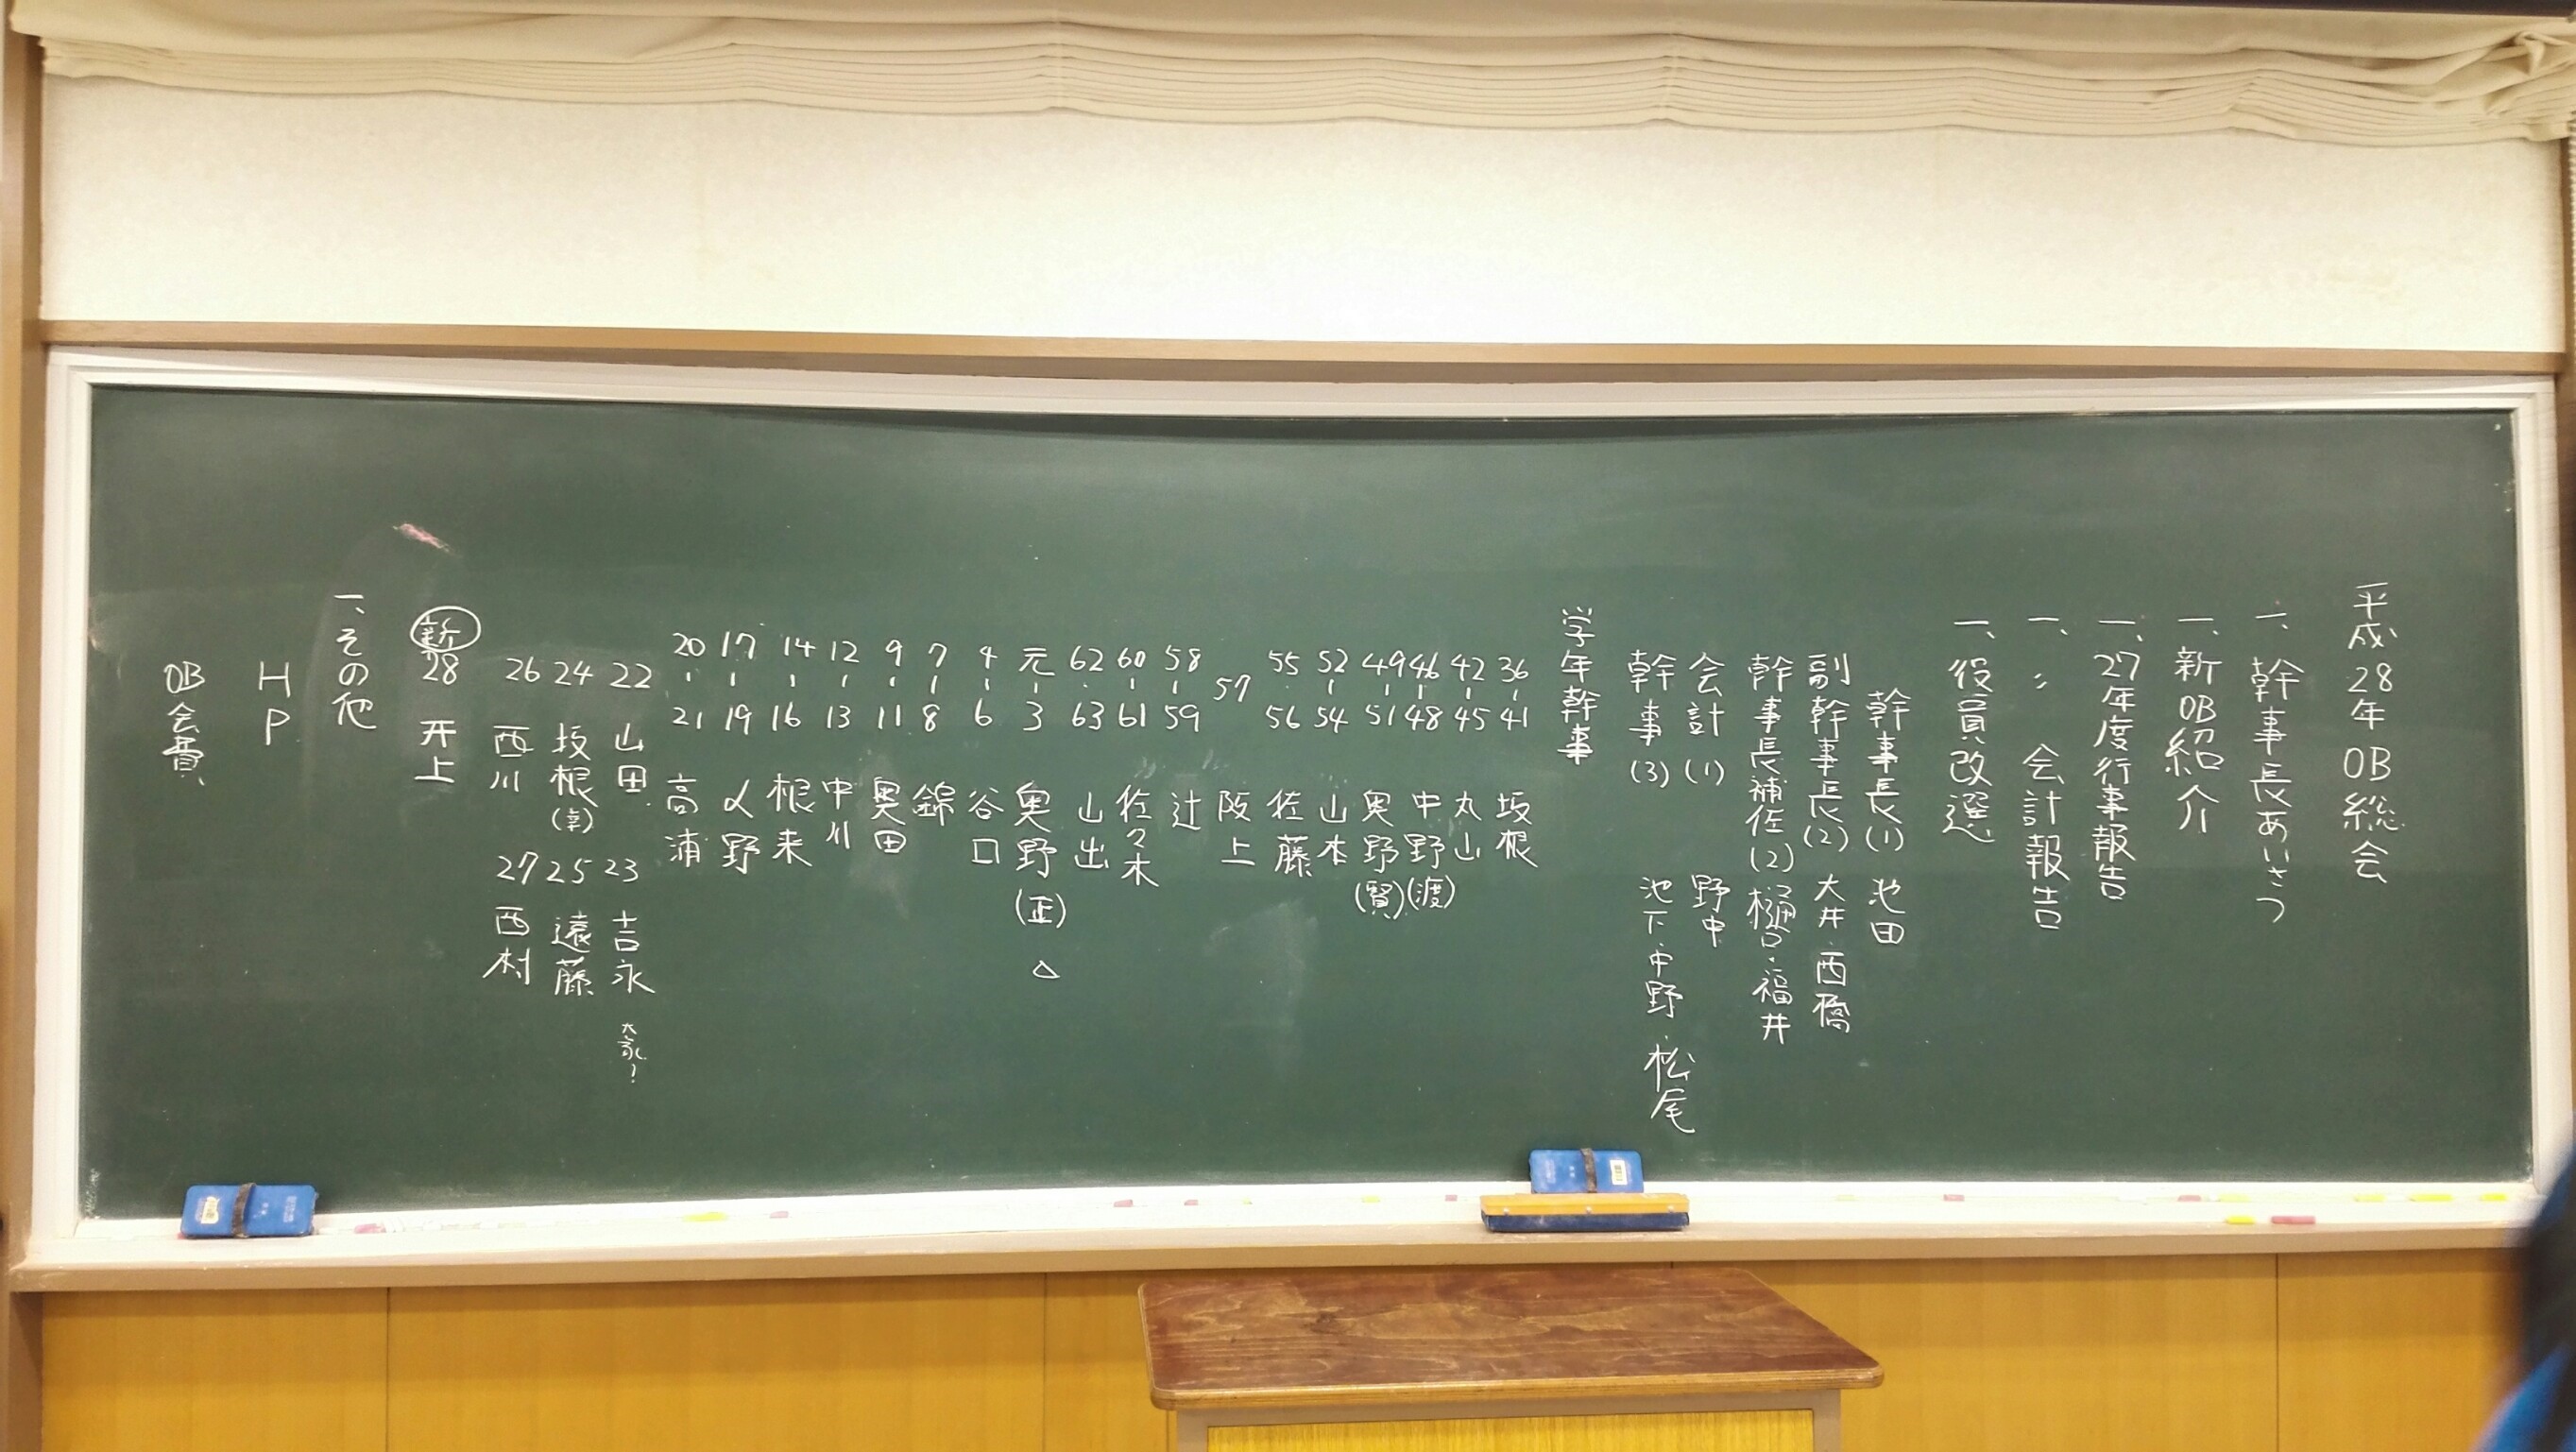 平成28年OB総会
一、幹事長あいさつ
一、新OB紹介
一、27年度行事報告
一、〃 会計報告
一、役員改選
幹事長(1) 池田
副幹事長(2) 大井 西橋
幹事長補佐(2) 樋口・福井
会計(1) 野中
幹事(3) 池下・中野・松尾
学年幹事
36-41 坂根
42-45 丸山
46-48 中野(渡)
49-51 奥野(賢)
52-54 山本
55-56 佐藤
57 阪上
58-59 辻
60-61 佐々木
62-63 山出
元-3 奥野(正) △
4-6 谷口
7-8 錦
9-11 奥田
12-13 中川
14-16 根来
17-19 乂野
20-21 高浦
22 山田 23 吉永
24 坂根 25 遠藤
26 西川 27 西村
新28 井上
一、その他
HP
OB会費